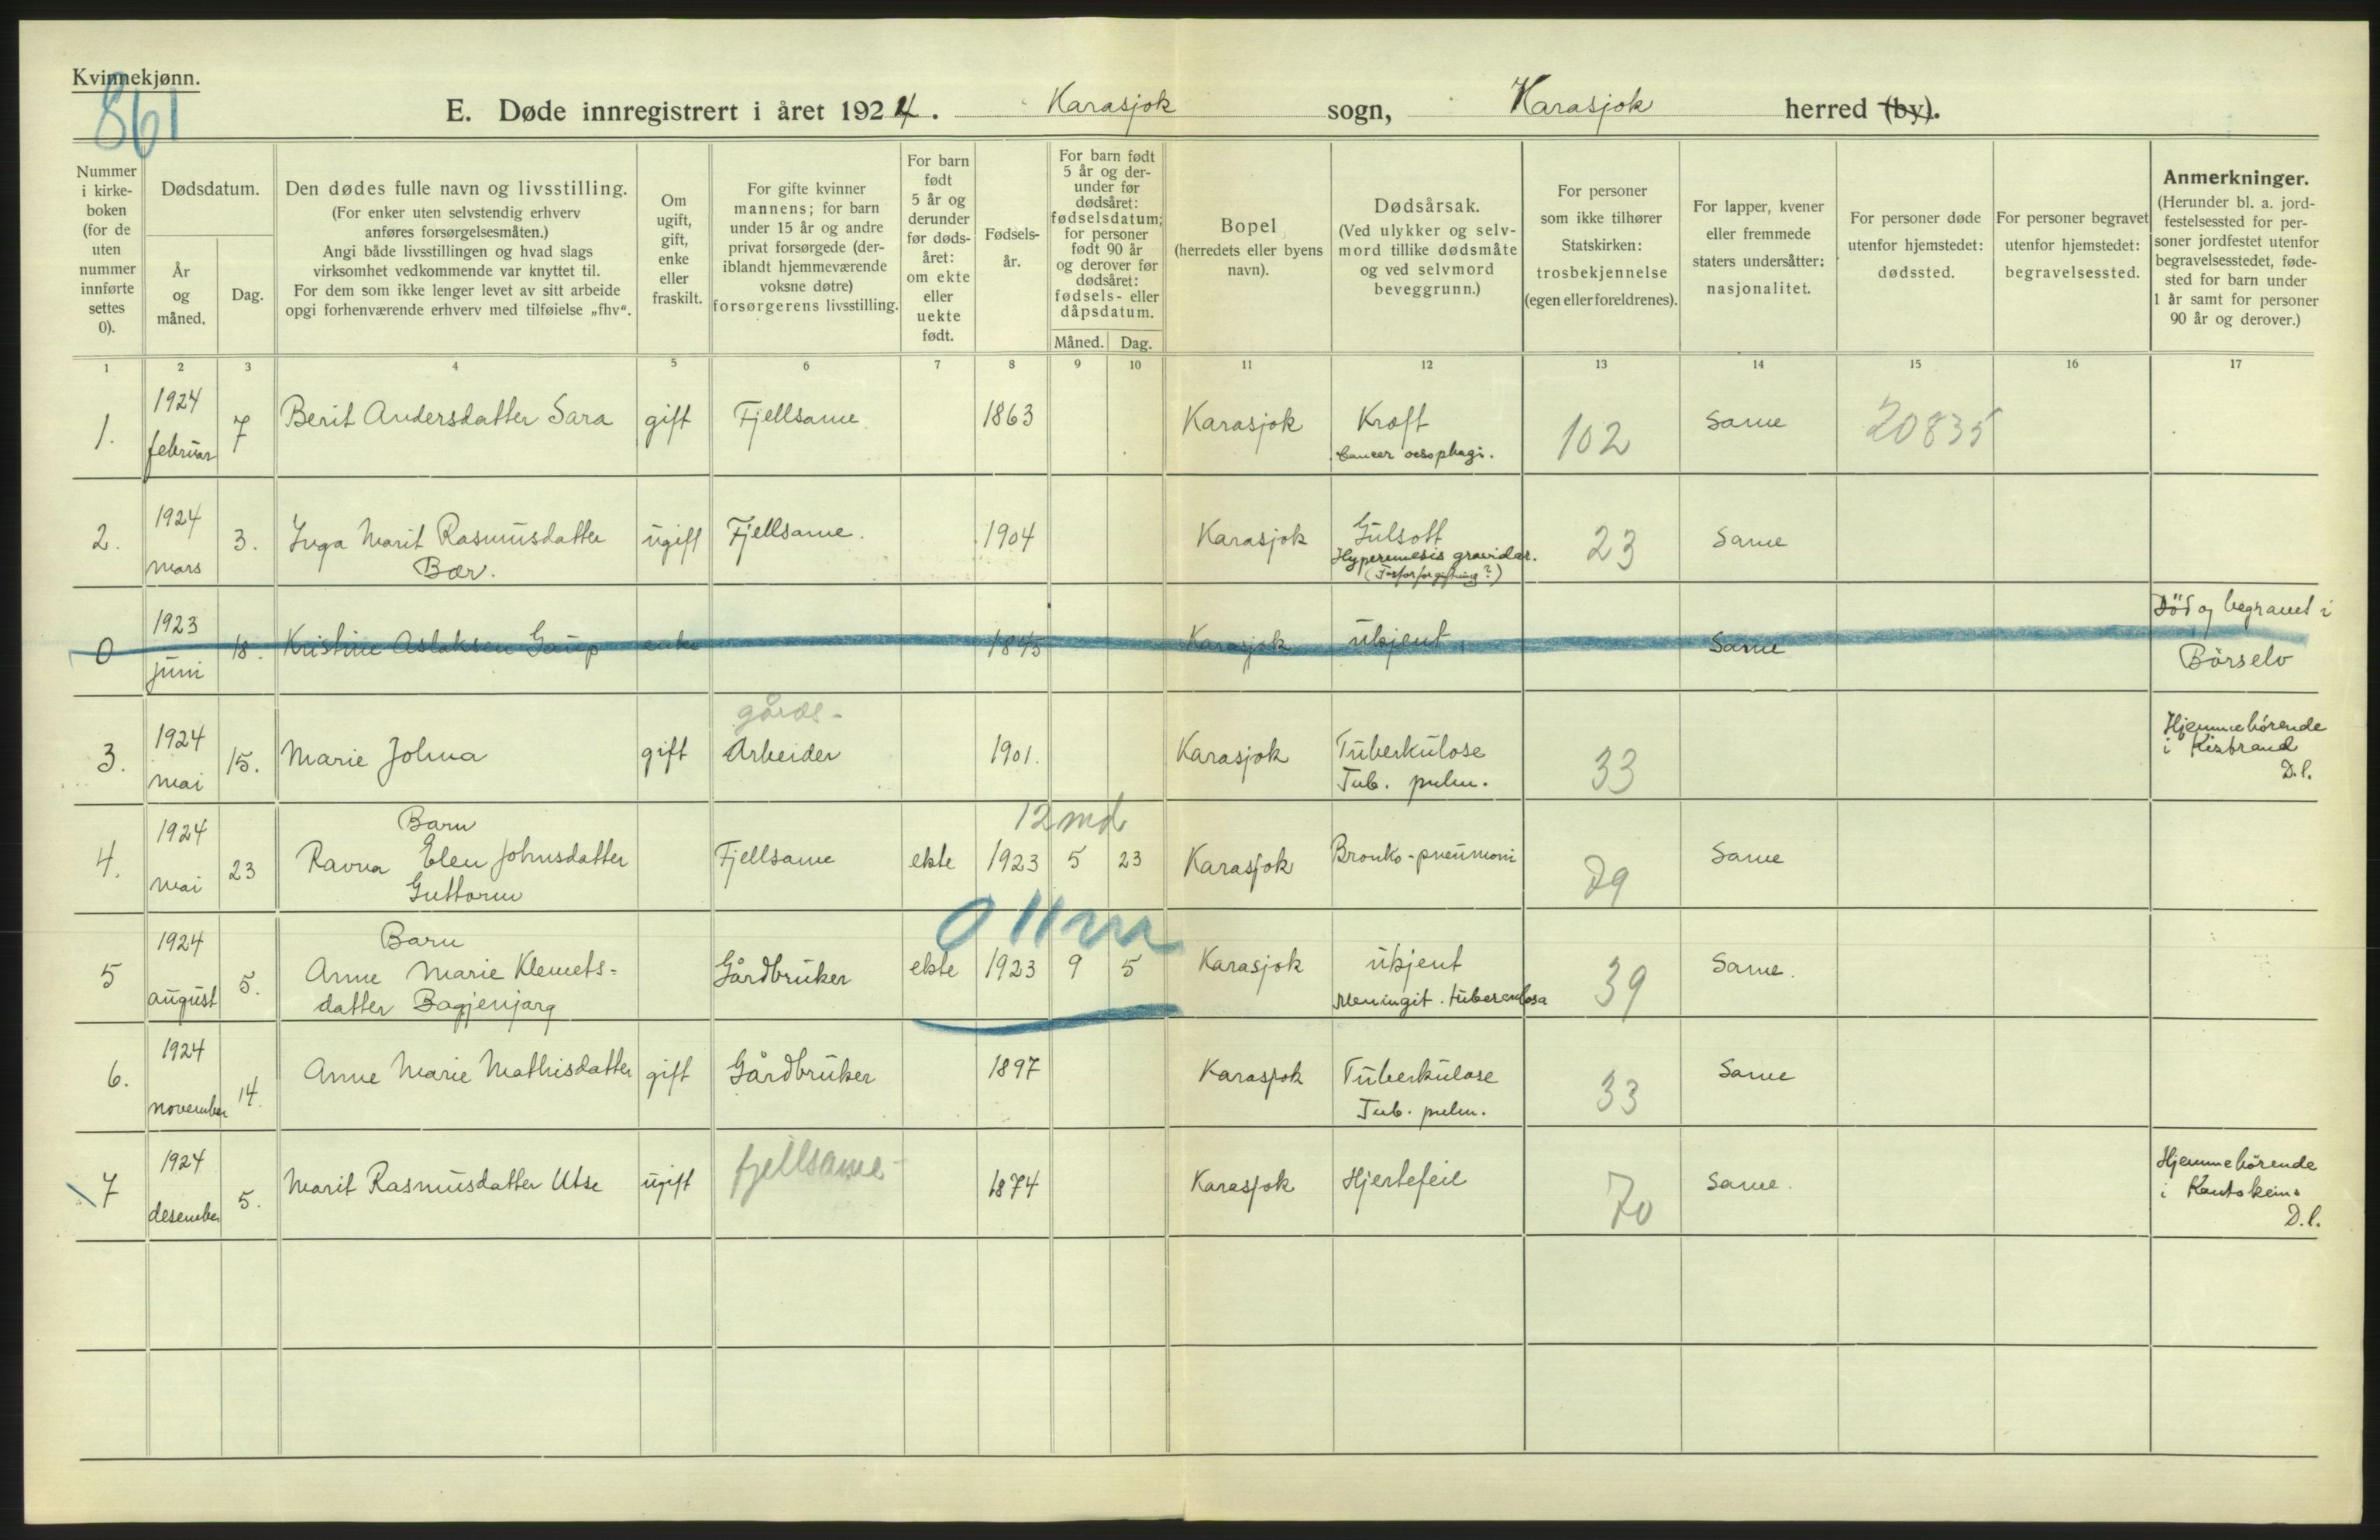 Kvinnekjønn.
861
E. Døde innregistrert i året 1924. Karasjok sogn, Karasjok herred (by).
Nummer i kirkeboken (for de uten nummer innførte settes 0).
Dødsdatum.
År og måned.
Dag.
Den dødes fulle navn og livsstilling.
(For enker uten selvstendig erhverv
anføres forsørgelsesmåten.)
Angi både livsstillingen og hvad slags
virksomhet vedkommende var knyttet til.
For dem som ikke lenger levet av sitt arbeide
opgi forhenværende erhverv med tilføielse „fhv“.
Om ugift, gift, enke eller fraskilt.
For gifte kvinner
mannens; for barn
under 15 år og andre
privat forsørgede (der-
iblandt hjemmeværende
voksne døtre)
forsørgerens livsstilling.
For barn født 5 år og derunder før dødsåret: om ekte eller uekte født.
Fødsels-
år.
For barn født
5 år og der-
under før
dødsåret:
fødselsdatum;
for personer
født 90 år
og derover før
dødsåret:
fødsels- eller
dåpsdatum.
Måned. Dag.
Bopel
(herredets eller byens
navn).
Dødsårsak.
(Ved ulykker og selv-
mord tillike dødsmåte
og ved selvmord
beveggrunn.)
For personer
som ikke tilhører
Statskirken:
trosbekjennelse
(egen eller foreldrenes).
For lapper, kvener
eller fremmede
staters undersåtter:
nasjonalitet.
For personer døde
utenfor hjemstedet:
dødssted.
For personer begravet
utenfor hjemstedet:
begravelsessted.
Anmerkninger.
(Herunder bl. a. jord-
festelsessted for per-
soner jordfestet utenfor
begravelsesstedet, føde-
sted for barn under
1 år samt for personer
90 år og derover.)
1 2 3 4 5 6 7 8 9 10 11 12 13 14 15 16 17
1. 1924 februar 7 Berit Andersdatter Sara gift Fjellsame 1863 Karasjok Kræft 102 Same 20835
Cancer oesophagi.
2. 1924 mars 3. Inga Marit Rasmusdatter ugift Fjellsame. 1904 Karasjok Gulsott 23 Same
Bær. Hyperemesis gravidar.
(Fosforforgiftning?)
0 1923 juni 18. Kristine Aslaksen Gaup enke 1845 Karasjok ukjent Same Död og begravet i
Börselv
gårds-
3. 1924 mai 15. Marie Johna gift Arbeider 1901. Karasjok Tuberkulose 33 Hjemmehörende
Tub. pulm. i Kistrand
D.l.
Barn 12 md
4. 1924 mai 23 Ravna Elen Johnsdatter Fjellsame ekte 1923 5 23 Karasjok Bronko-pneumoni 79 Same
Guttorm
0 11 m
Barn
5 1924 august 5. Anne Marie Klemets- Gårdbruker ekte 1923 9 5 Karasjok ukjent 39 Same.
datter Bagjenjarg Meningit. tuberculosa
6. 1924 november 14. Anne Marie Mathisdatter gift Gårdbruker 1897 Karasjok Tuberkulose 33 Same
Tub. pulm.
7 1924 desember 5. Marit Rasmusdatter Utse ugift fjellsame 1874 Karasjok Hjertefeil 70 Same. Hjemmehörende
i Kautokeino
D.l.